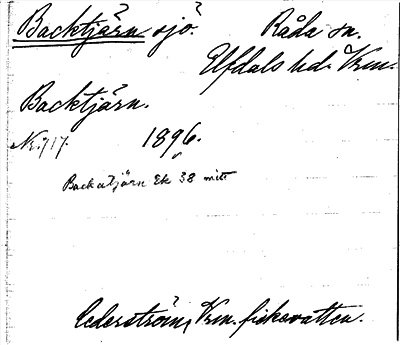 Backtjärn sjö. Råda sn.
Älfdals hd. Vrm.
Backtjärn.
Nr. 717. 1896.
Backatjärn Ek 38 mitt
Cederström, Vrm. fiskevatten.